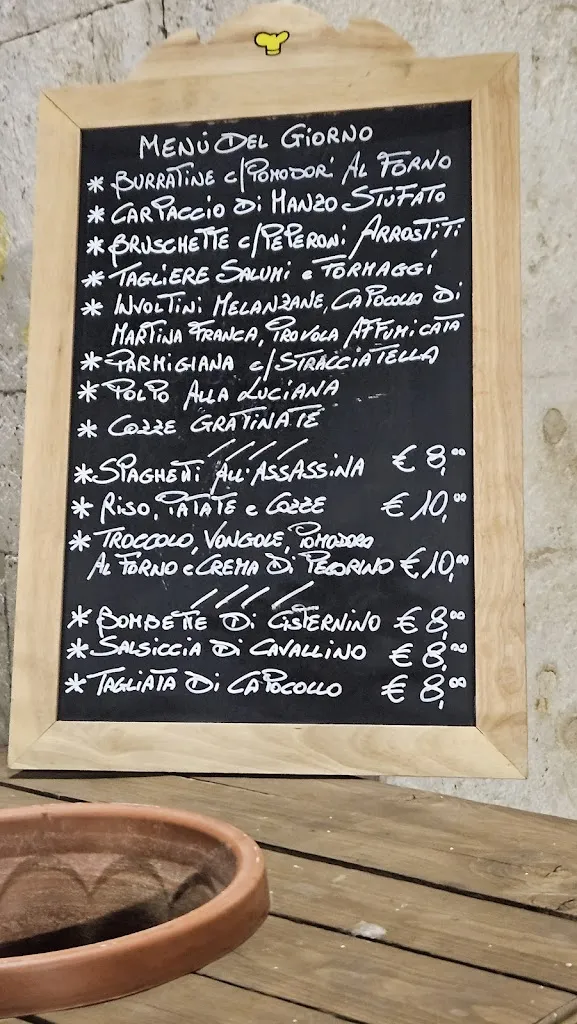 MENÚ DEL GIORNO
* BURRATINE c/POMODORI AL FORNO
* CARPACCIO DI MANZO STUFATO
* BRUSCHETTE c/PEPERONI ARROSTITI
* TAGLIERE SALUMI e FORMAGGI
* INVOLTINI MELANZANE, CAPOCOLLO DI
MARTINA FRANCA, PROVOLA AFFUMICATA
* PARMIGIANA c/STRACCIATELLA
* POLPO ALLA LUCIANA
* COZZE GRATINATE
////
* SPAGHETTI ALL'ASSASSINA € 8,00
* RISO, PATATE e COZZE € 10,00
* TROCCOLO, VONGOLE, POMODORO
AL FORNO e CREMA DI PECORINO € 10,00
////
* BOMBETTE DI CISTERNINO € 8,00
* SALSICCIA DI CAVALLINO € 8,00
* TAGLIATA DI CAPOCOLLO € 8,00